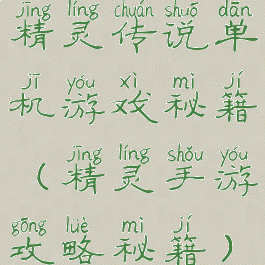 jīng líng chuán shuō dān
精灵传说单
jī yóu xì mì jí
机游戏秘籍
jīng líng shǒu yóu
（精灵手游
gōng lüè mì jí
攻略秘籍）